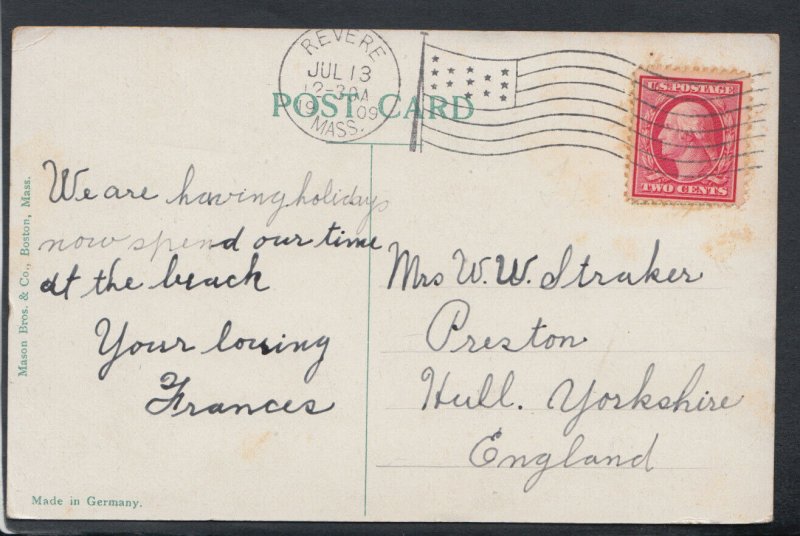 REVERE
JUL 13
12-30A
19 09
MASS.
POST CARD
U.S. POSTAGE
TWO CENTS
We are having holidays
now spend our time
at the beach
Your loving
Frances
Mrs W. W. Straker
Preston
Hull. Yorkshire
England
Mason Bros. & Co., Boston, Mass.
Made in Germany.